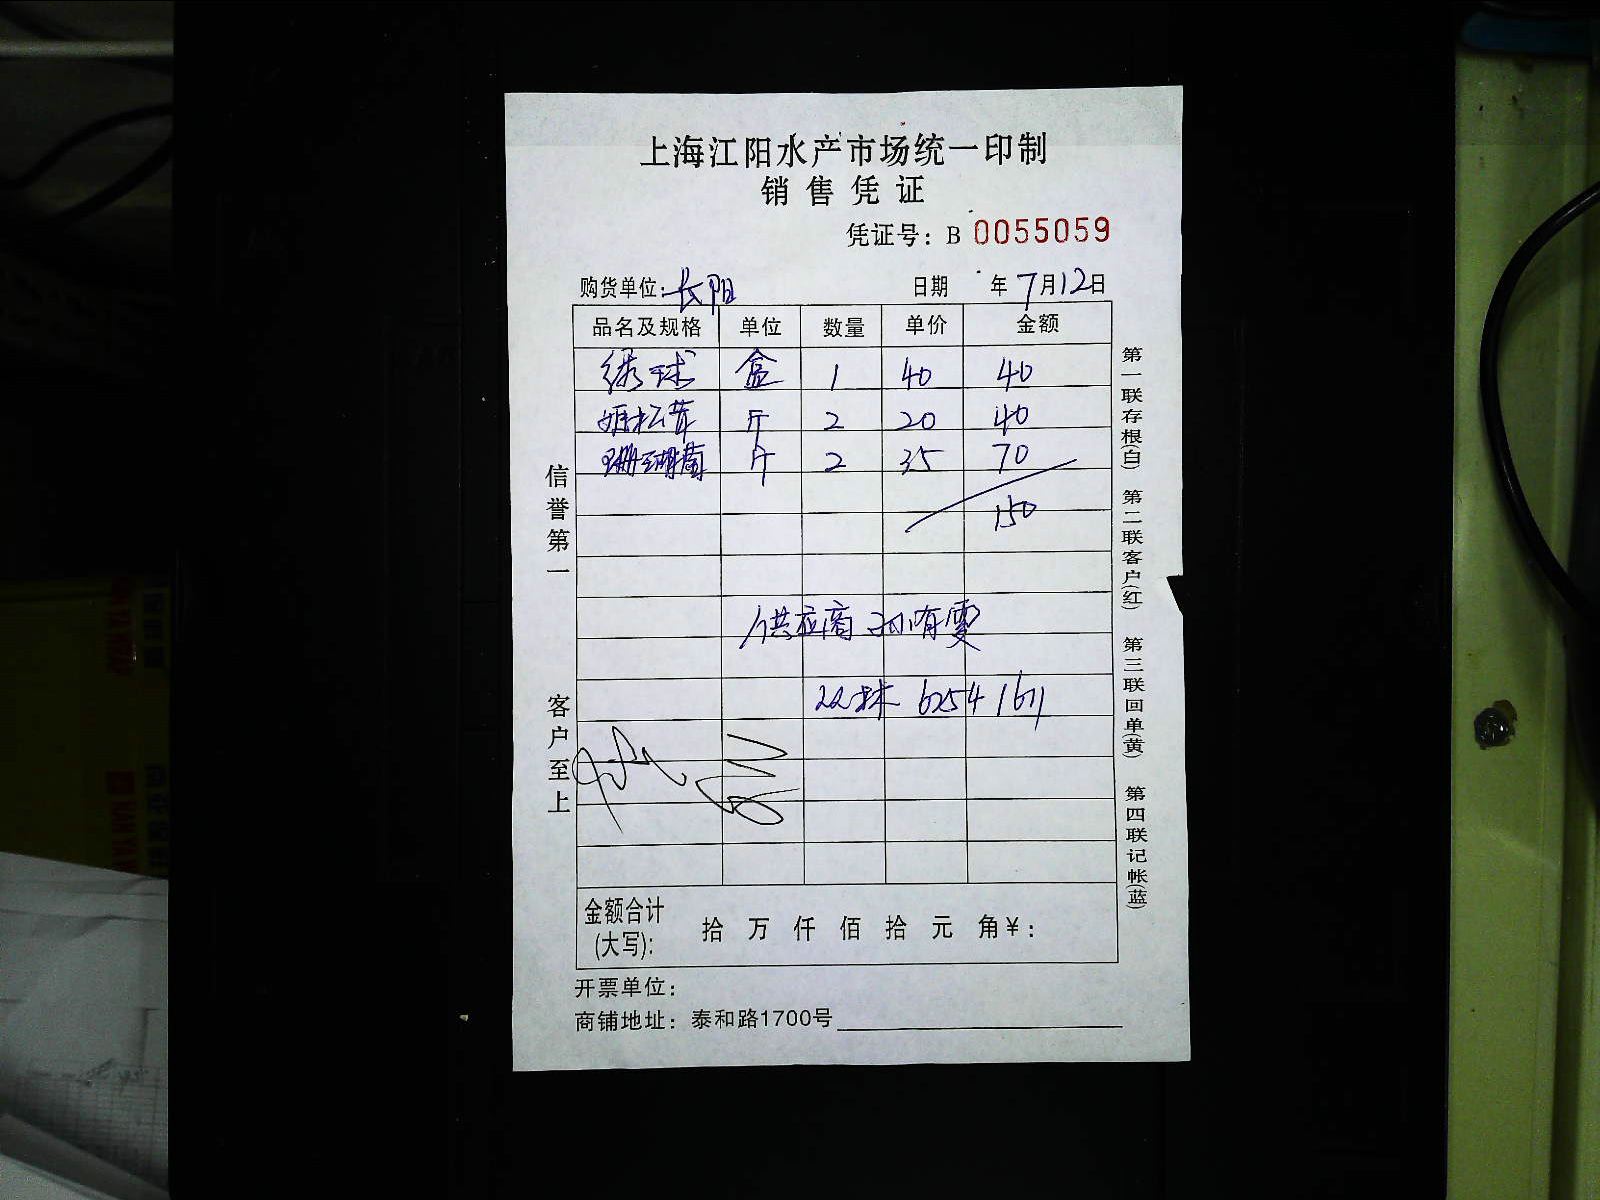 上海江阳水产市场统一印制
销售凭证
凭证号：B 0055059
购货单位：长阳 日期 年7月12日
品名及规格 单位 数量 单价 金额
绣球 盒 1 40 40
姬松茸 斤 2 20 40
珊瑚菌 斤 2 35 70
150
供应商 孙有雯
6254 1611
金额合计(大写)： 拾 万 仟 佰 拾 元 角￥：
开票单位：
商铺地址：泰和路1700号
信誉第一
客户至上
第一联存根(白)
第二联客户(红)
第三联回单(黄)
第四联记帐(蓝)